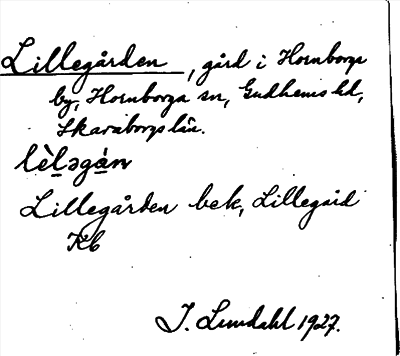 Lillegården, gård i Hornborga
by, Hornborga sn, Gudhems hd,
Skaraborgs län.
lèl̠əgà̠n
Lillegården bek, Lillegård
Kb
I. Lundahl 1927.